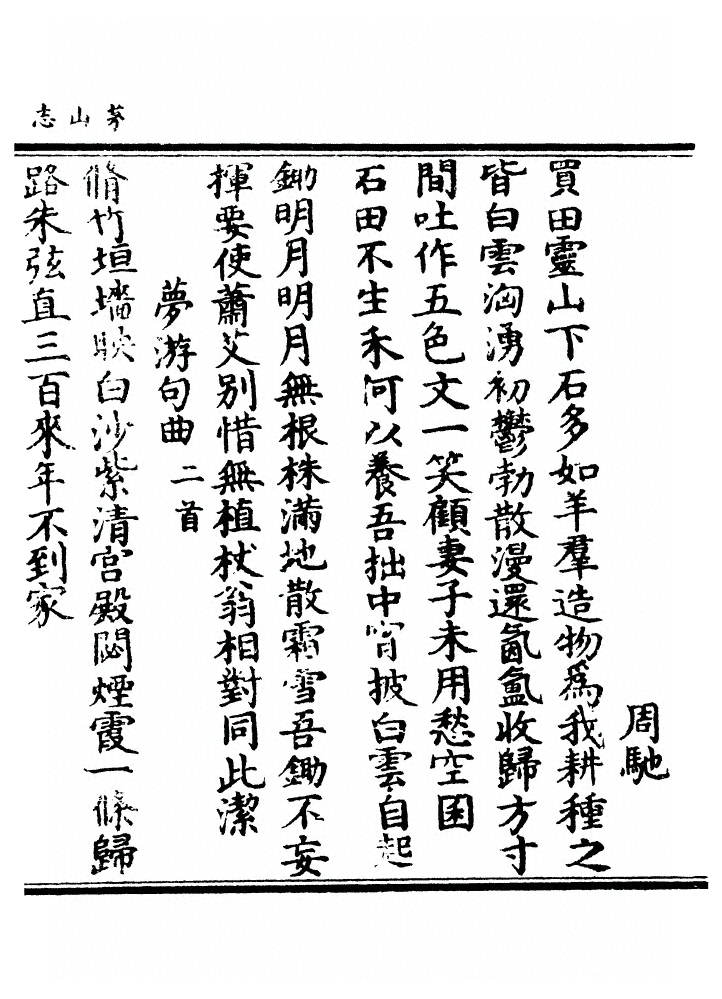 茅山志
周馳
買田靈山下石多如羊羣造物爲我耕種之
皆白雲洶湧初鬱勃散漫還氤氳收歸方寸
間吐作五色文一笑顧妻子未用愁空囷
石田不生禾何以養吾拙中宵披白雲自起
鋤明月明月無根株滿地散霜雪吾鋤不妄
揮要使蕭艾別惜無植杖翁相對同此潔
夢游句曲二首
脩竹垣墻映白沙紫清宮殿閟煙霞一條歸
路朱弦直三百來年不到家